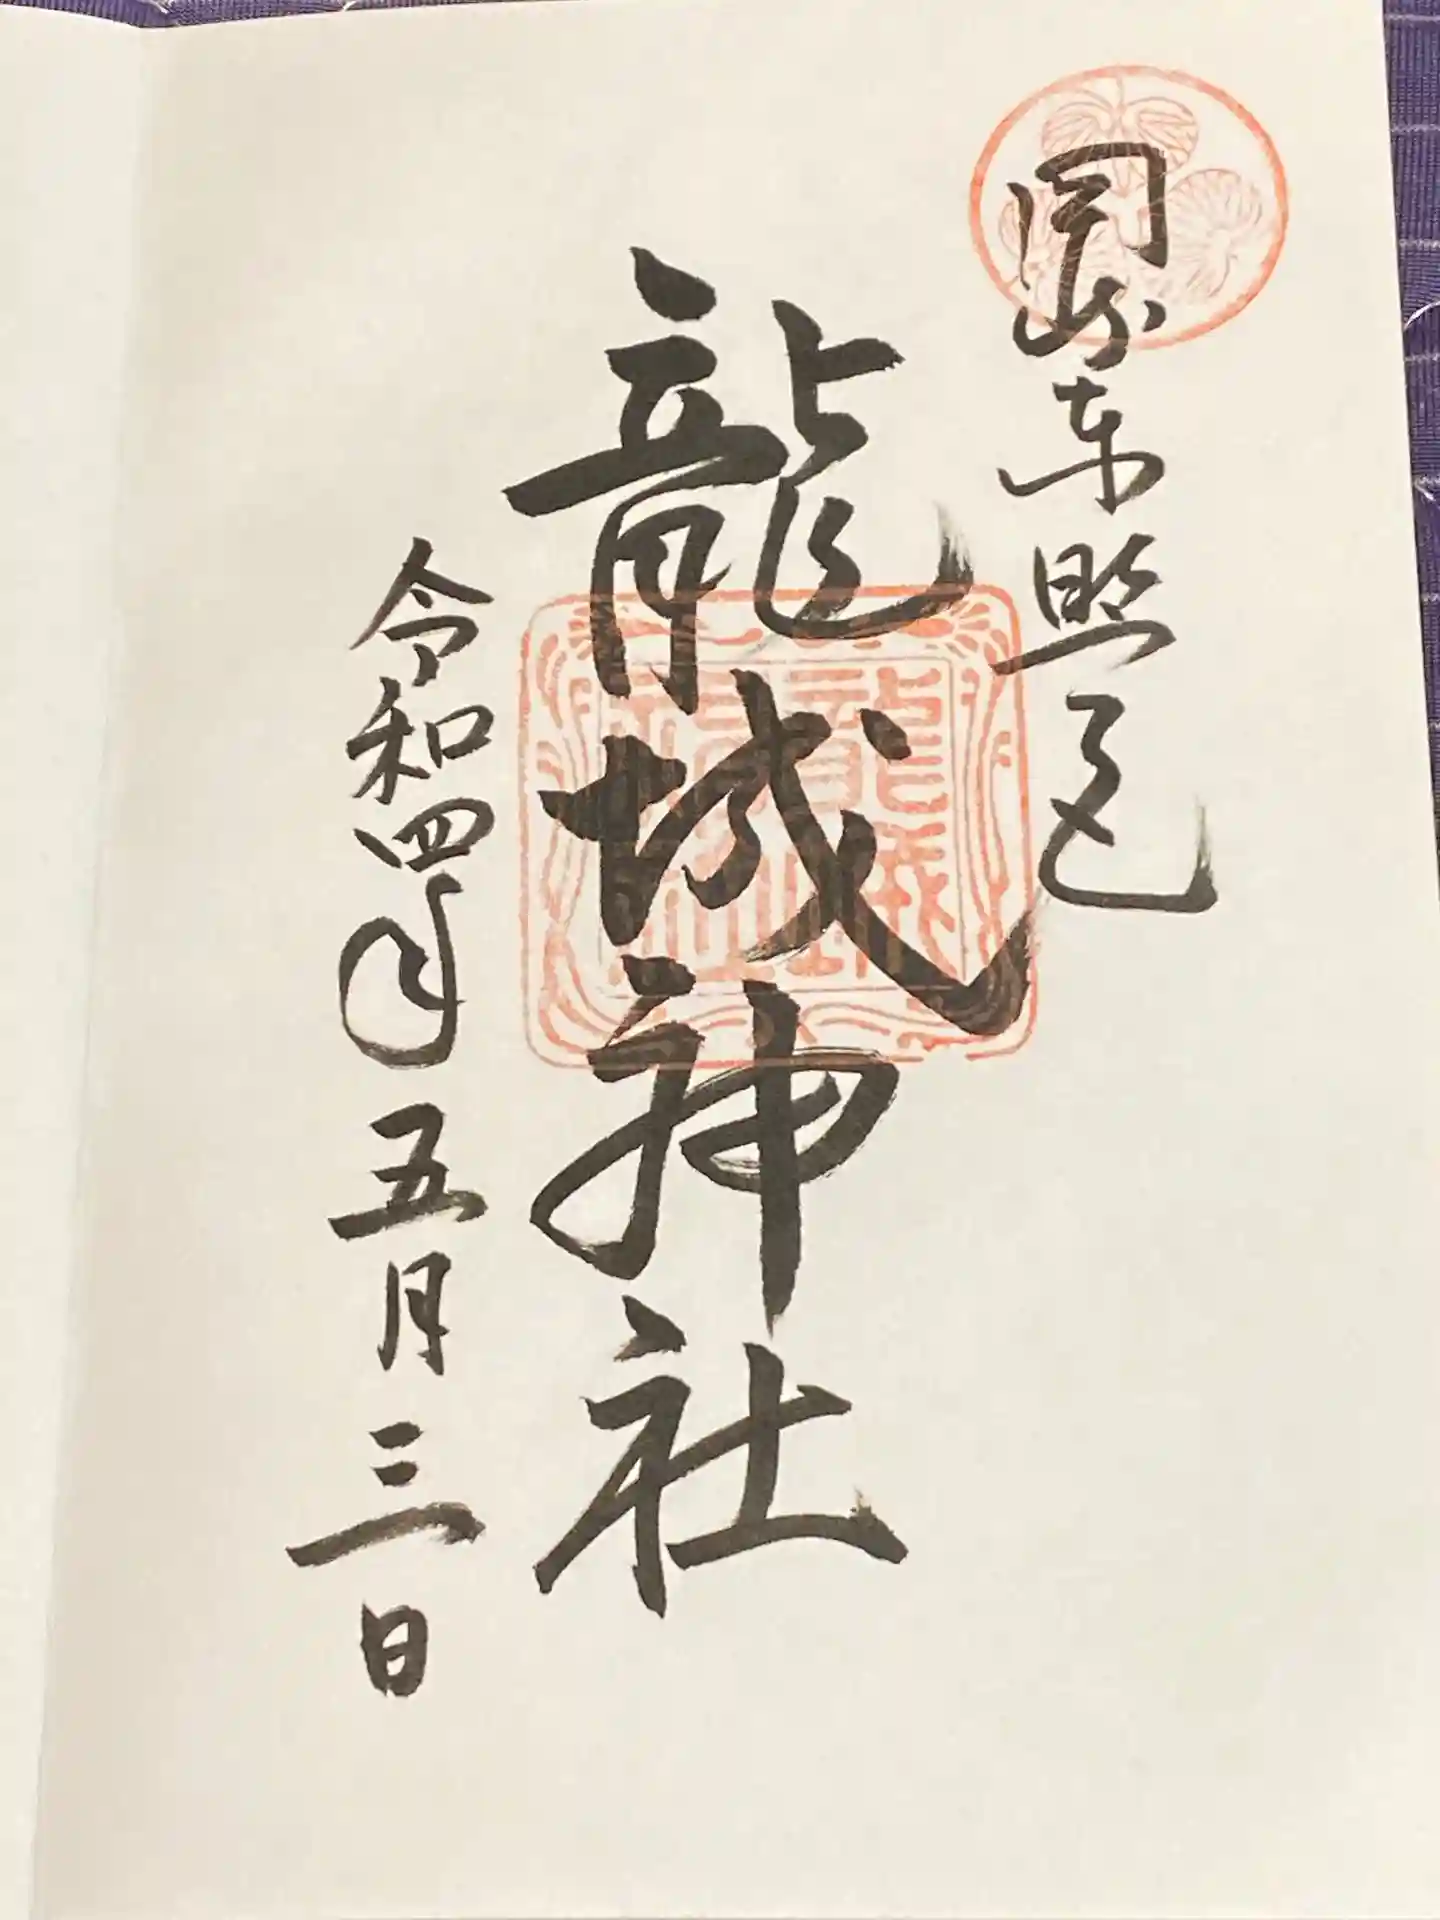 岡崎東照宮
龍城神社
令和四年五月三日
龍城
神社